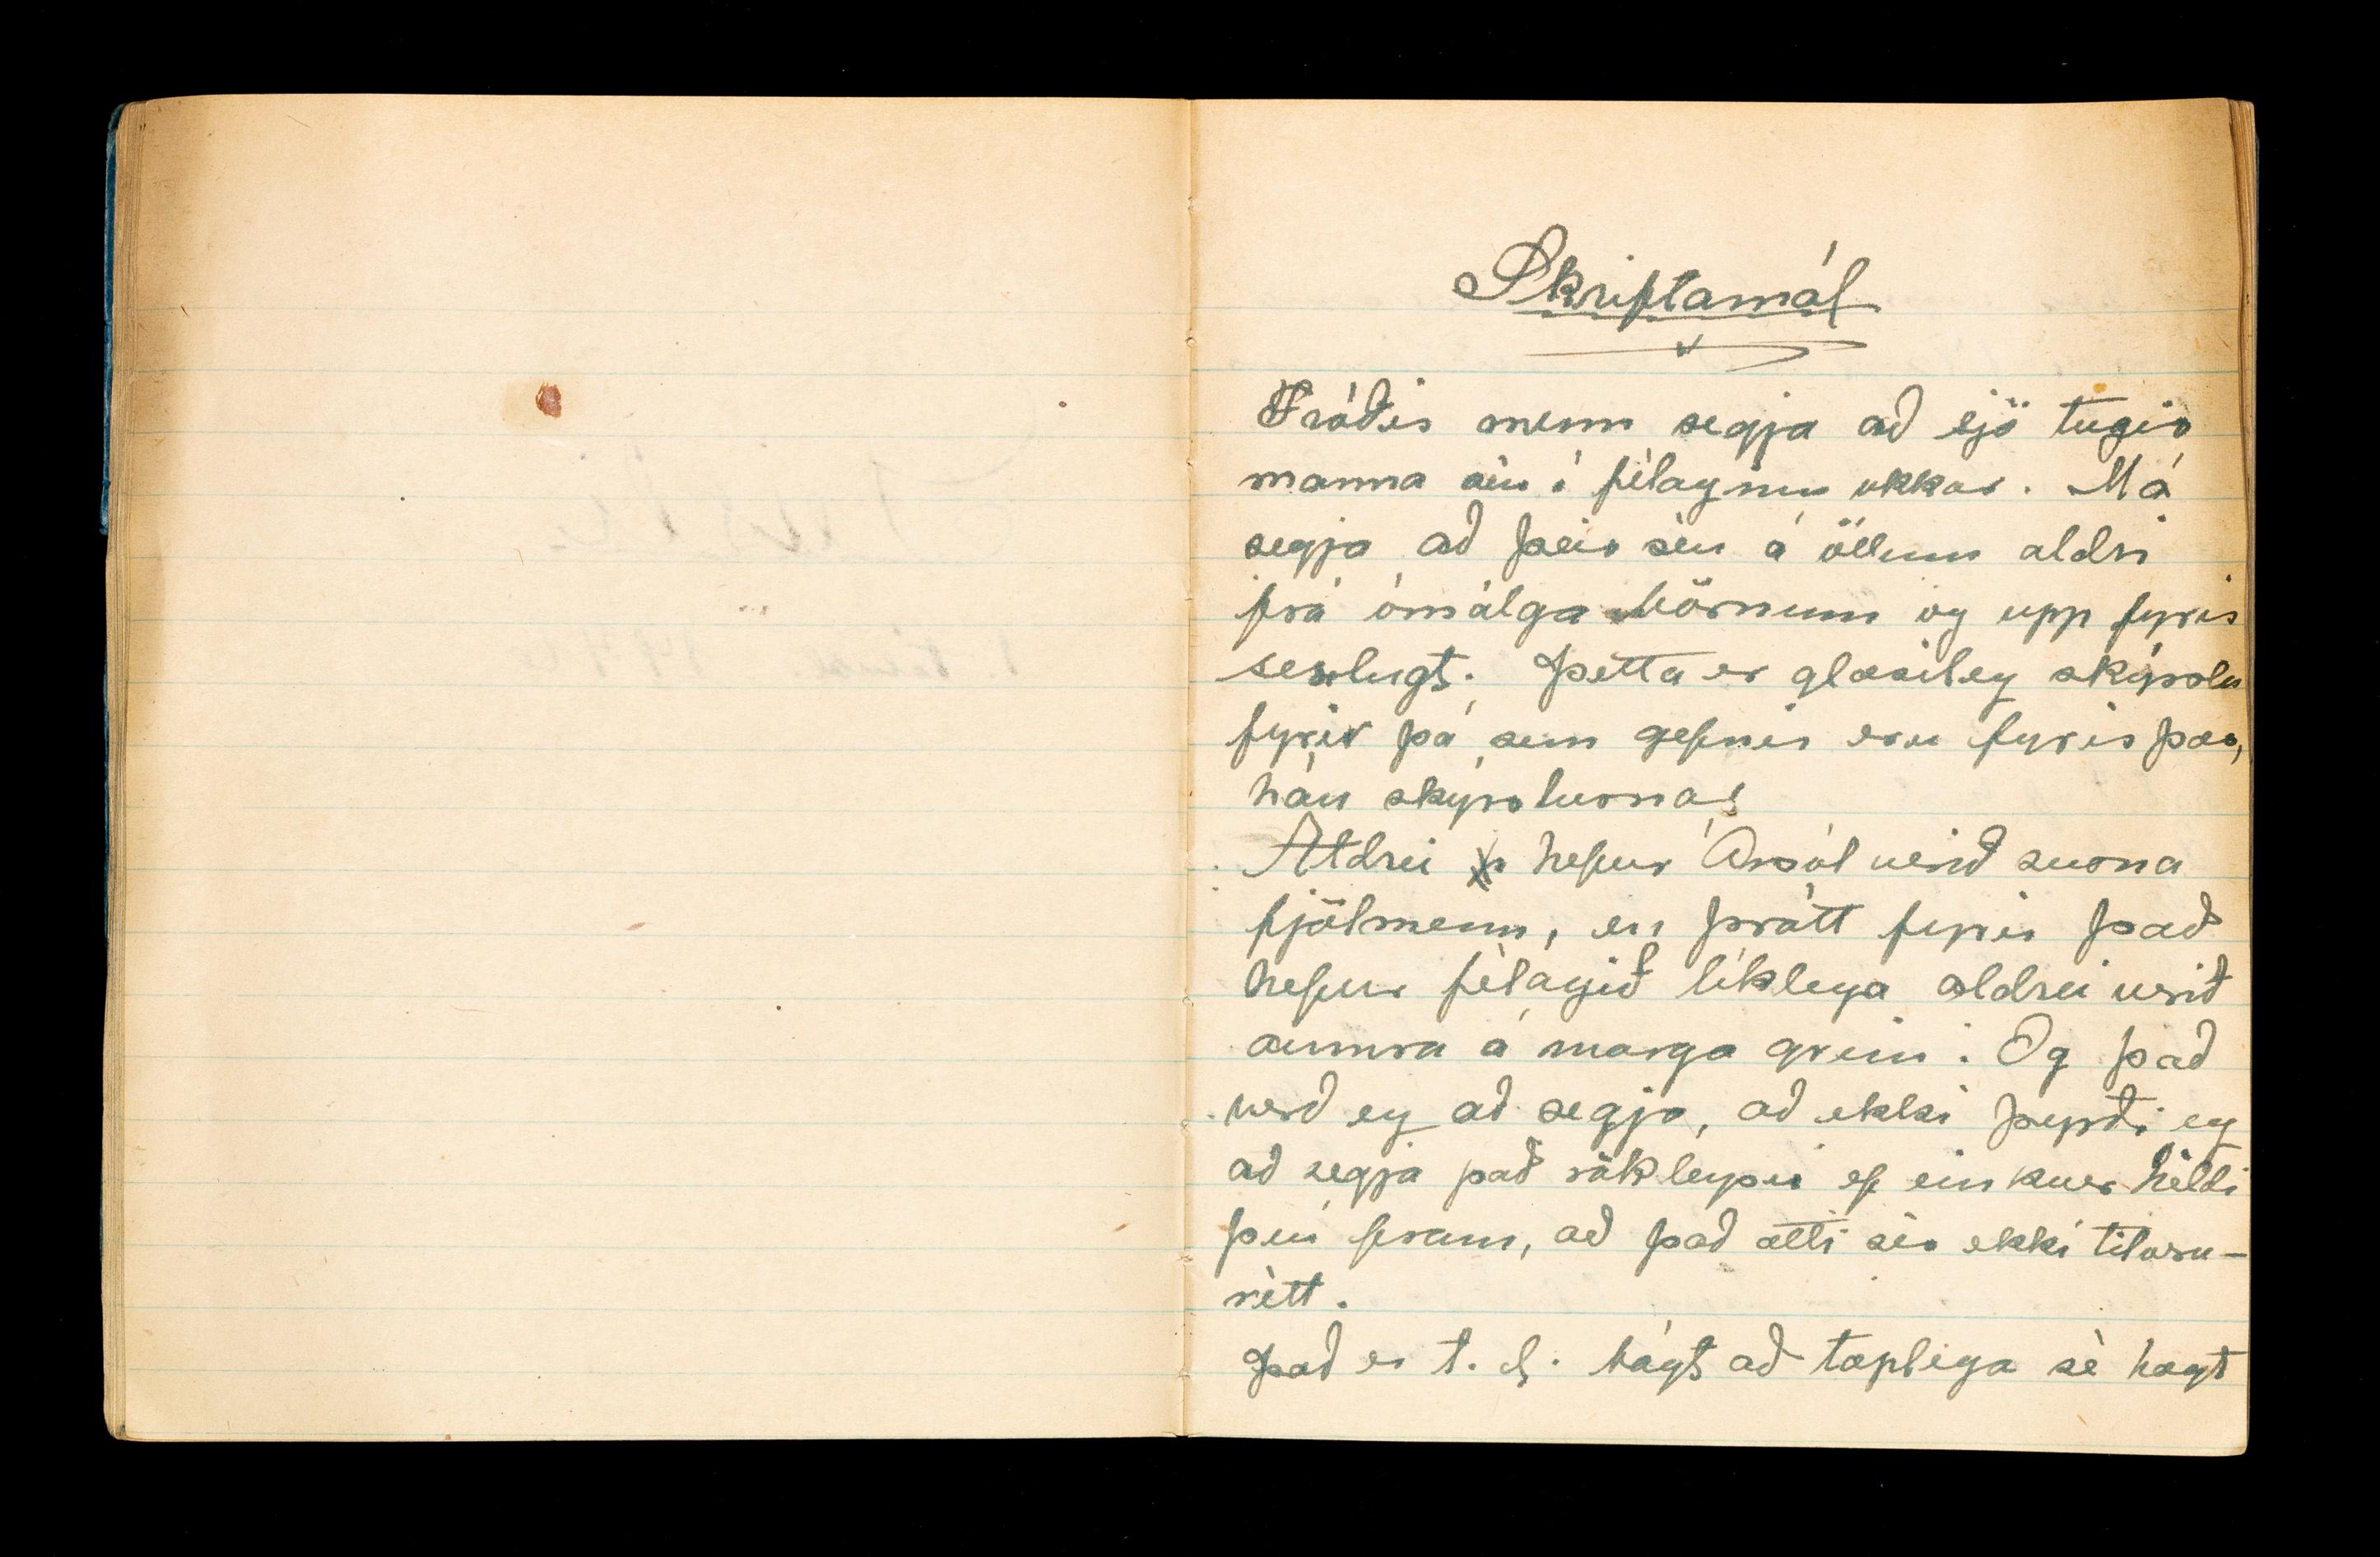 Skriptamál
Fróðir menn segja að sjö tugir
manna séu í félaginu okkar. Má
segja að þeir séu á öllum aldri
frá ómálga börnum og upp fyrir
sextugt. Þetta er glæsileg skýrsla
fyrir þá, sem gefnir eru fyrir þær,
háu skýrslurnar
Aldrei hefur Ársól verið svona
fjölmenn, en þrátt fyrir það
hefur félagið líklega aldrei verið
aumra á marga grein. Og það
verð eg að segja, að ekki þyrði eg
að segja það rökleysu ef einhver héldi
því fram, að það ætti sér ekki tilveru-
rétt.
Það er t. d. hágt að tæplega sé hægt